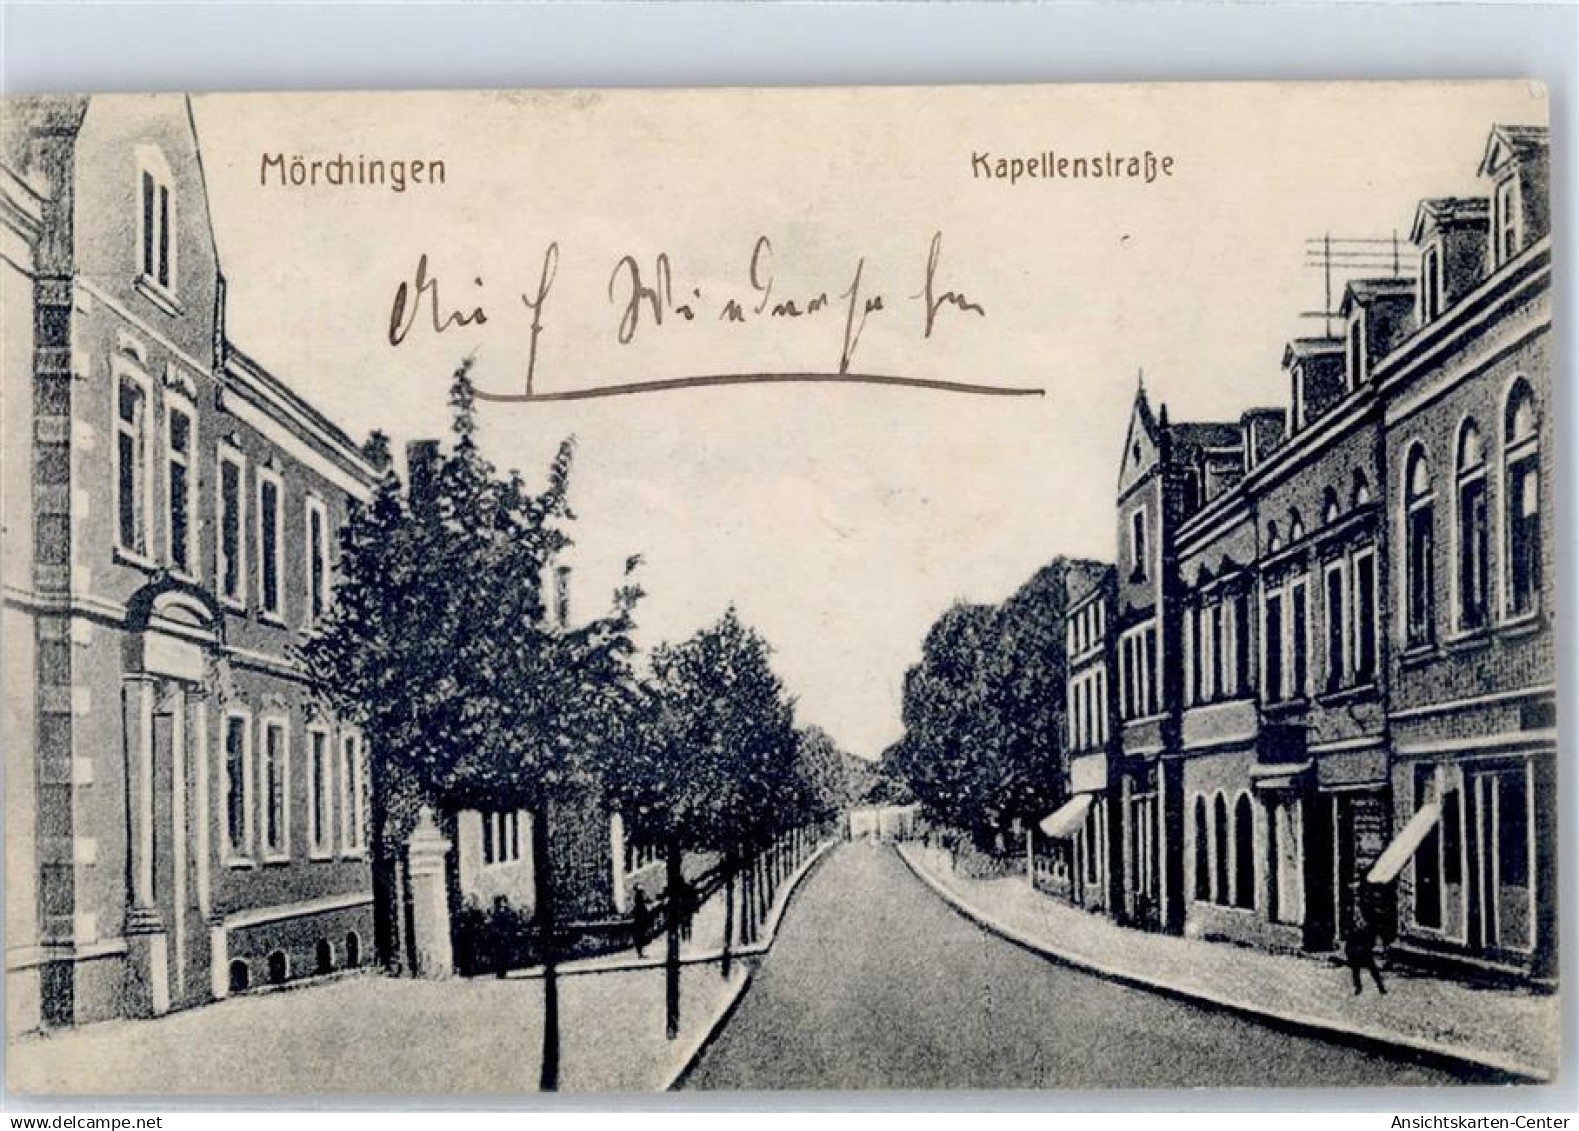 Mörchingen
Kapellenstraße
Auf Wiedersehen
www.delcampe.net
Ansichtskarten-Center